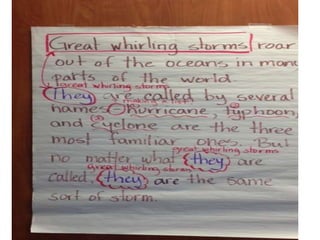 Great whirling storms roar
out of the oceans in many
parts of the world.
great whirling storms
They are called by several
making a list
names - Hurricane, typhoon,
and Cyclone are the three
most familiar ones. But
great whirling storms
no matter what they are
great whirling storms
called, they are the same
sort of storm.